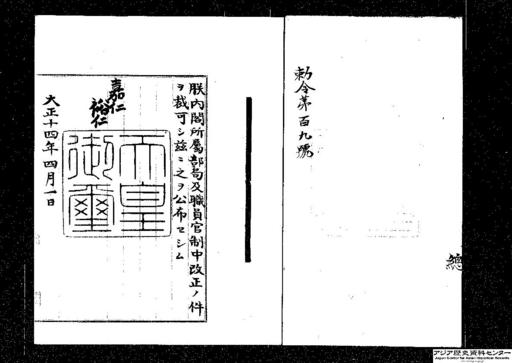 勅令第百九號
總
朕内閣所屬部局及職員官制中改正ノ件
ヲ裁可シ茲ニ之ヲ公布セシム
嘉仁
裕仁
天皇
御璽
大正十四年四月一日
アジア歴史資料センター
Japan Center for Asian Historical Records